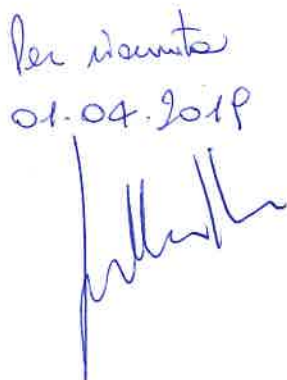 Per ricevuta
01.04.2019